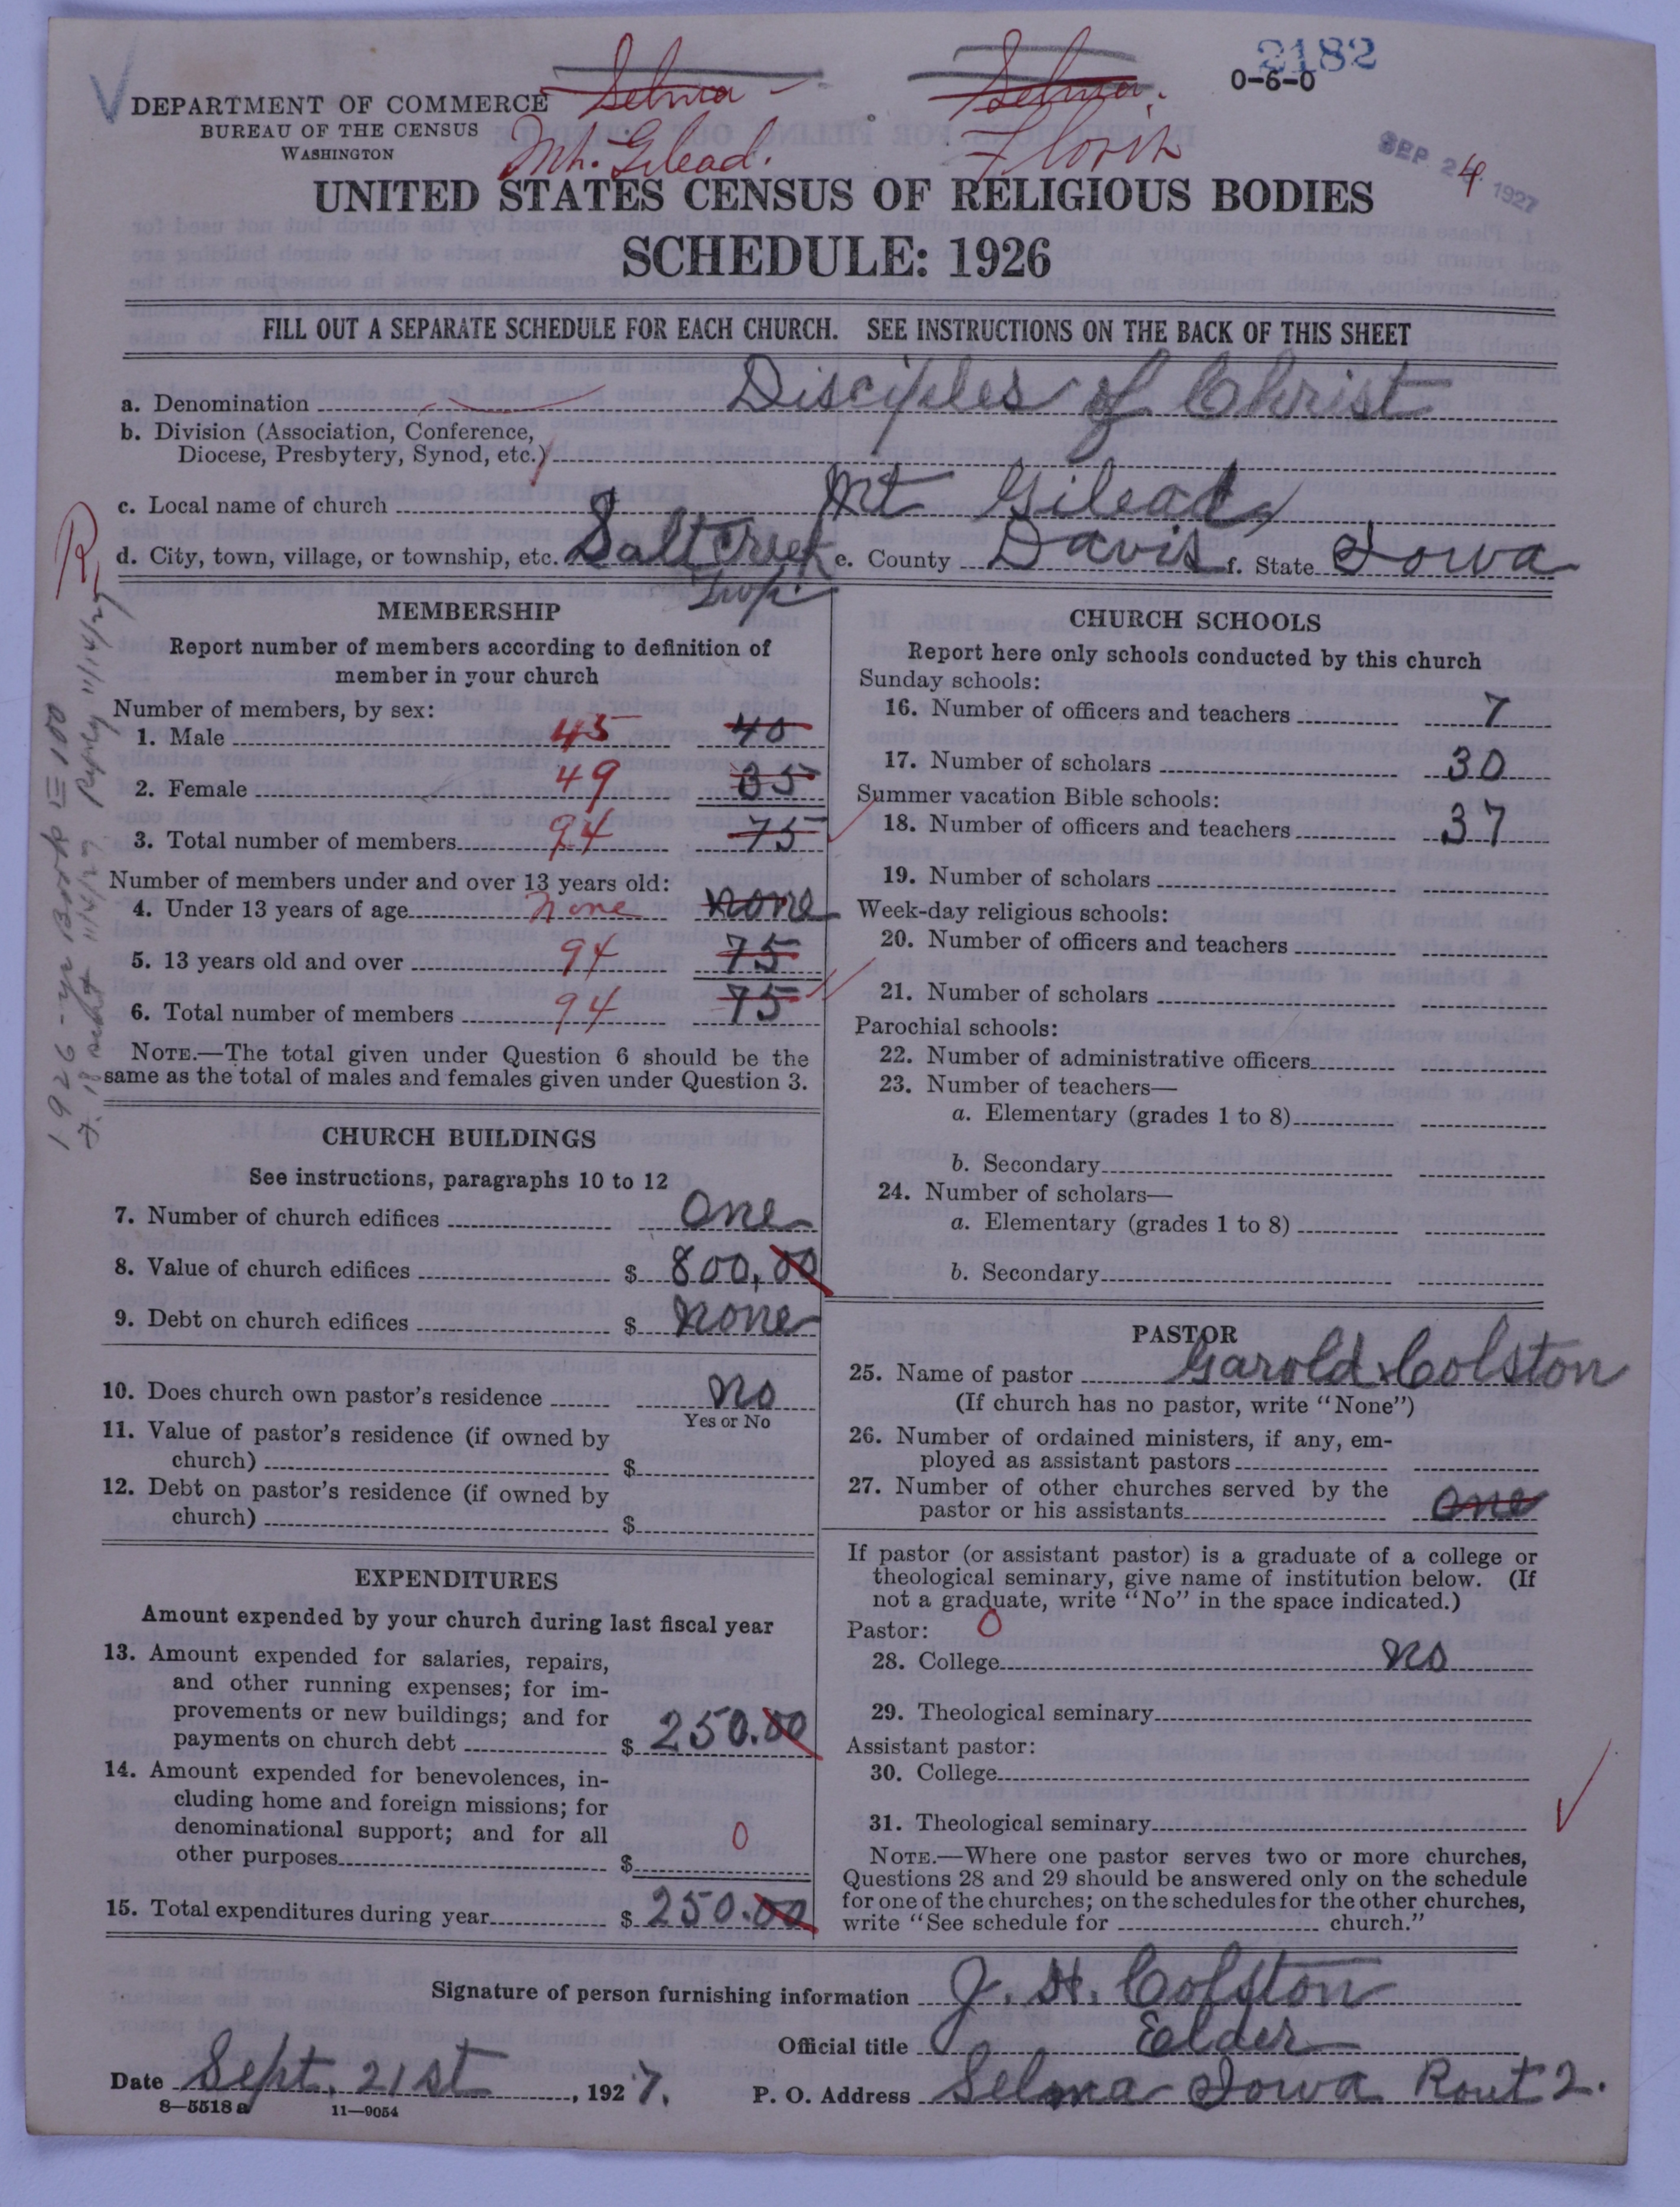 2182
0-6-0
DEPARTMENT OF COMMERCE
BUREAU OF THE CENSUS
WASHINGTON
Selma
Selma
Mt. Gilead.
Floris
SEP 24 1927
UNITED STATES CENSUS OF RELIGIOUS BODIES
SCHEDULE: 1926
FILL OUT A SEPARATE SCHEDULE FOR EACH CHURCH. SEE INSTRUCTIONS ON THE BACK OF THIS SHEET
a. Denomination Disciples of Christ
b. Division (Association, Conference,
Diocese, Presbytery, Synod, etc.)
c. Local name of church Mt Gilead
d. City, town, village, or township, etc. Salt Creek Twp. e. County Davis f. State Iowa
R,
1926-yr Book = 100
Reply 11/14/27
MEMBERSHIP
Report number of members according to definition of
member in your church
Number of members, by sex:
1. Male 45 40
2. Female 49 35
3. Total number of members 94 75
Number of members under and over 13 years old:
4. Under 13 years of age none none
5. 13 years old and over 94 75
6. Total number of members 94 75
NOTE.—The total given under Question 6 should be the
same as the total of males and females given under Question 3.
CHURCH BUILDINGS
See instructions, paragraphs 10 to 12
7. Number of church edifices One
8. Value of church edifices $ 800,00
9. Debt on church edifices $ none
10. Does church own pastor's residence no
Yes or No
11. Value of pastor's residence (if owned by
church) $
12. Debt on pastor's residence (if owned by
church) $
EXPENDITURES
Amount expended by your church during last fiscal year
13. Amount expended for salaries, repairs,
and other running expenses; for im-
provements or new buildings; and for
payments on church debt $ 250.00
14. Amount expended for benevolences, in-
cluding home and foreign missions; for
denominational support; and for all
other purposes $ 0
15. Total expenditures during year $ 250.00
CHURCH SCHOOLS
Report here only schools conducted by this church
Sunday schools:
16. Number of officers and teachers 7
17. Number of scholars 30
Summer vacation Bible schools:
18. Number of officers and teachers 37
19. Number of scholars
Week-day religious schools:
20. Number of officers and teachers
21. Number of scholars
Parochial schools:
22. Number of administrative officers
23. Number of teachers—
a. Elementary (grades 1 to 8)
b. Secondary
24. Number of scholars—
a. Elementary (grades 1 to 8)
b. Secondary
PASTOR
25. Name of pastor Garold Colston
(If church has no pastor, write "None")
26. Number of ordained ministers, if any, em-
ployed as assistant pastors
27. Number of other churches served by the
pastor or his assistants one
If pastor (or assistant pastor) is a graduate of a college or
theological seminary, give name of institution below. (If
not a graduate, write "No" in the space indicated.)
Pastor: 0
28. College no
29. Theological seminary
Assistant pastor:
30. College
31. Theological seminary
NOTE.—Where one pastor serves two or more churches,
Questions 28 and 29 should be answered only on the schedule
for one of the churches; on the schedules for the other churches,
write "See schedule for church."
Signature of person furnishing information J. H. Colston
Official title Elder
Date Sept. 21st, 1927.
P. O. Address Selma Iowa Rout 2.
8—5518 a
11—9054